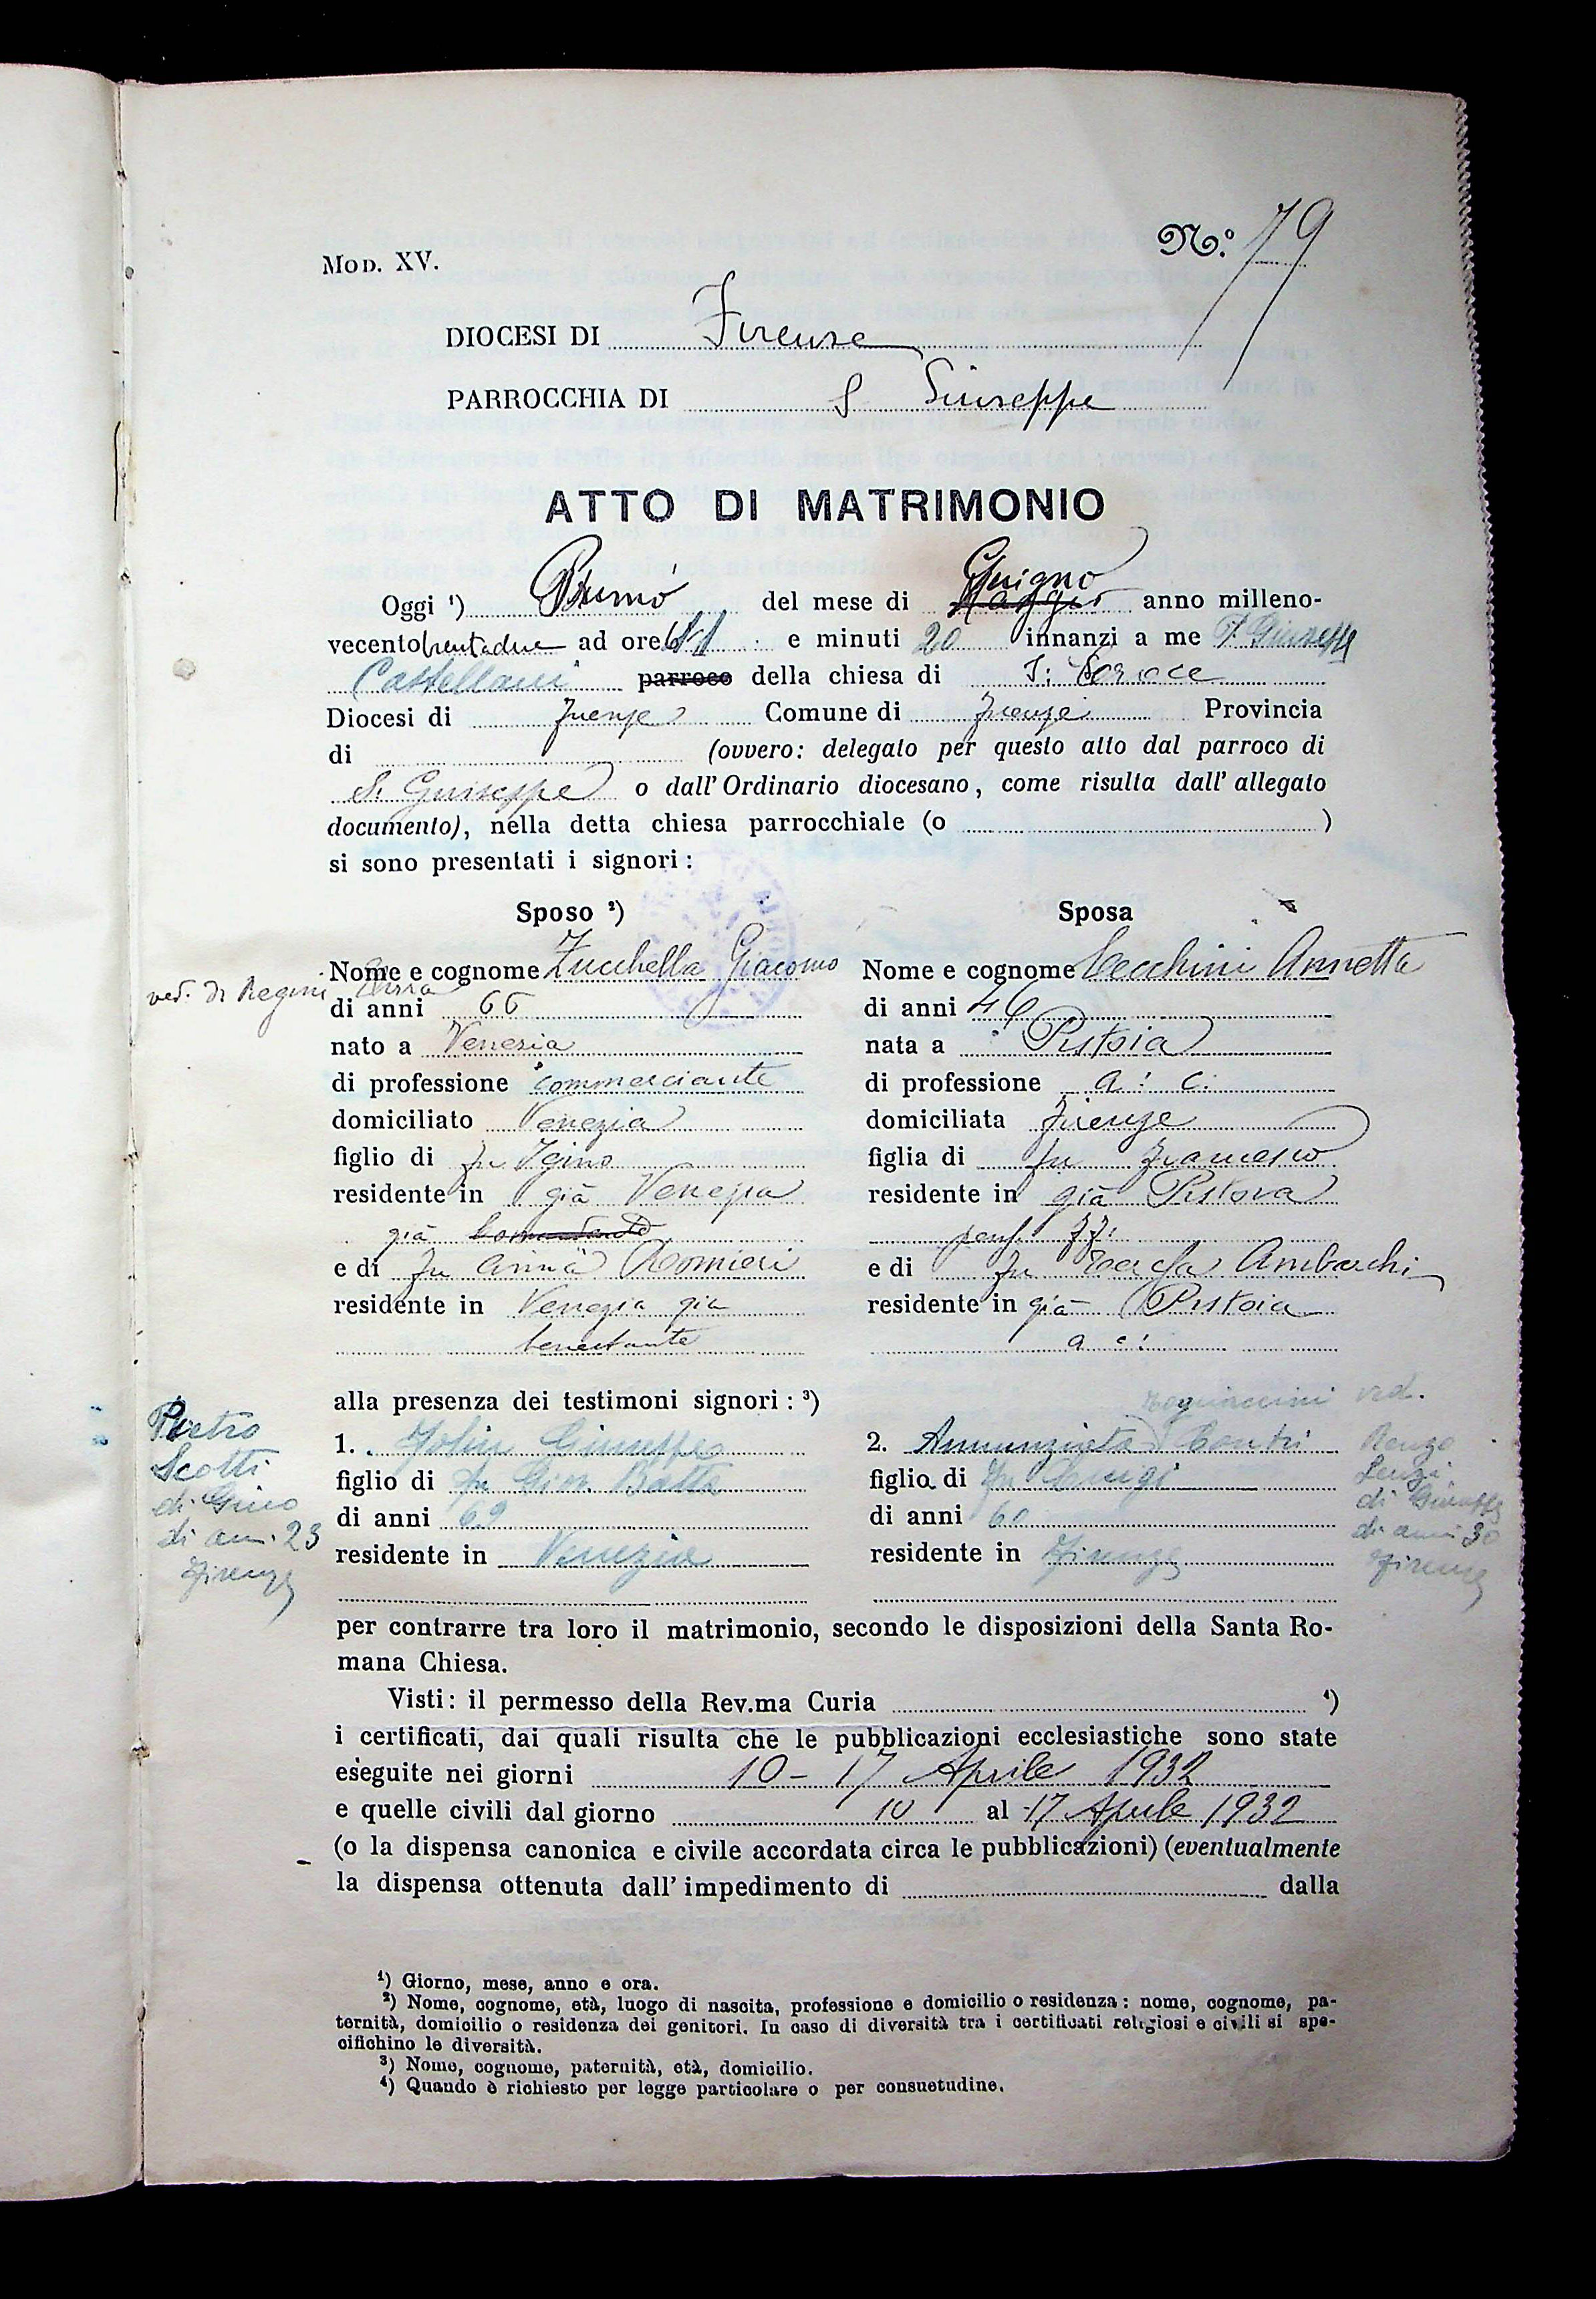 Mod. XV.
N.º 79
DIOCESI DI Firenze
PARROCCHIA DI S Giuseppe
ATTO DI MATRIMONIO
Oggi ¹) Primo del mese di Giugno anno milleno-
vecento trentadue ad ore 11 e minuti 20 innanzi a me P. Giuseppe
Castellani parroco della chiesa di S: Croce
Diocesi di Firenze Comune di Firenze Provincia
di (ovvero: delegato per questo atto dal parroco di
S. Giuseppe o dall'Ordinario diocesano, come risulta dall'allegato
documento), nella detta chiesa parrocchiale (o )
si sono presentati i signori:
Sposo ²)
Nome e cognome Zucchella Giacomo
ved. di Regini
di anni 66
nato a Venezia
di professione commerciante
domiciliato Venezia
figlio di fu Igino
residente in già Venezia
già
e di fu Anna Romieri
residente in Venezia già
benestante
Sposa
Nome e cognome Cecchini Annetta
di anni 46
nata a Pistoia
di professione a: c.
domiciliata Firenze
figlia di fu Francesco
residente in già Pistoia
pens. FF.
e di fu Ambarchi
residente in già Pistoia
a c:
alla presenza dei testimoni signori: ³)
1. Giuseppe
figlio di fu Giov. Batta
di anni 69
residente in Venezia
Pietro
Scotti
di Gino
di anni 23
Firenze
ved.
2. Annunziata Contri
figlia di fu Luigi
di anni 60
residente in Firenze
Renzo
Lenzi
di Giuseppe
di anni 30
Firenze
per contrarre tra loro il matrimonio, secondo le disposizioni della Santa Ro-
mana Chiesa.
Visti: il permesso della Rev.ma Curia ⁴)
i certificati, dai quali risulta che le pubblicazioni ecclesiastiche sono state
eseguite nei giorni 10 - 17 Aprile 1932
e quelle civili dal giorno 10 al 17 Aprile 1932
(o la dispensa canonica e civile accordata circa le pubblicazioni) (eventualmente
la dispensa ottenuta dall'impedimento di dalla
¹) Giorno, mese, anno e ora.
²) Nome, cognome, età, luogo di nascita, professione e domicilio o residenza: nome, cognome, pa-
ternità, domicilio o residenza dei genitori. In caso di diversità tra i certificati religiosi e civili si spe-
cifichino le diversità.
³) Nome, cognome, paternità, età, domicilio.
⁴) Quando è richiesto per legge particolare o per consuetudine.